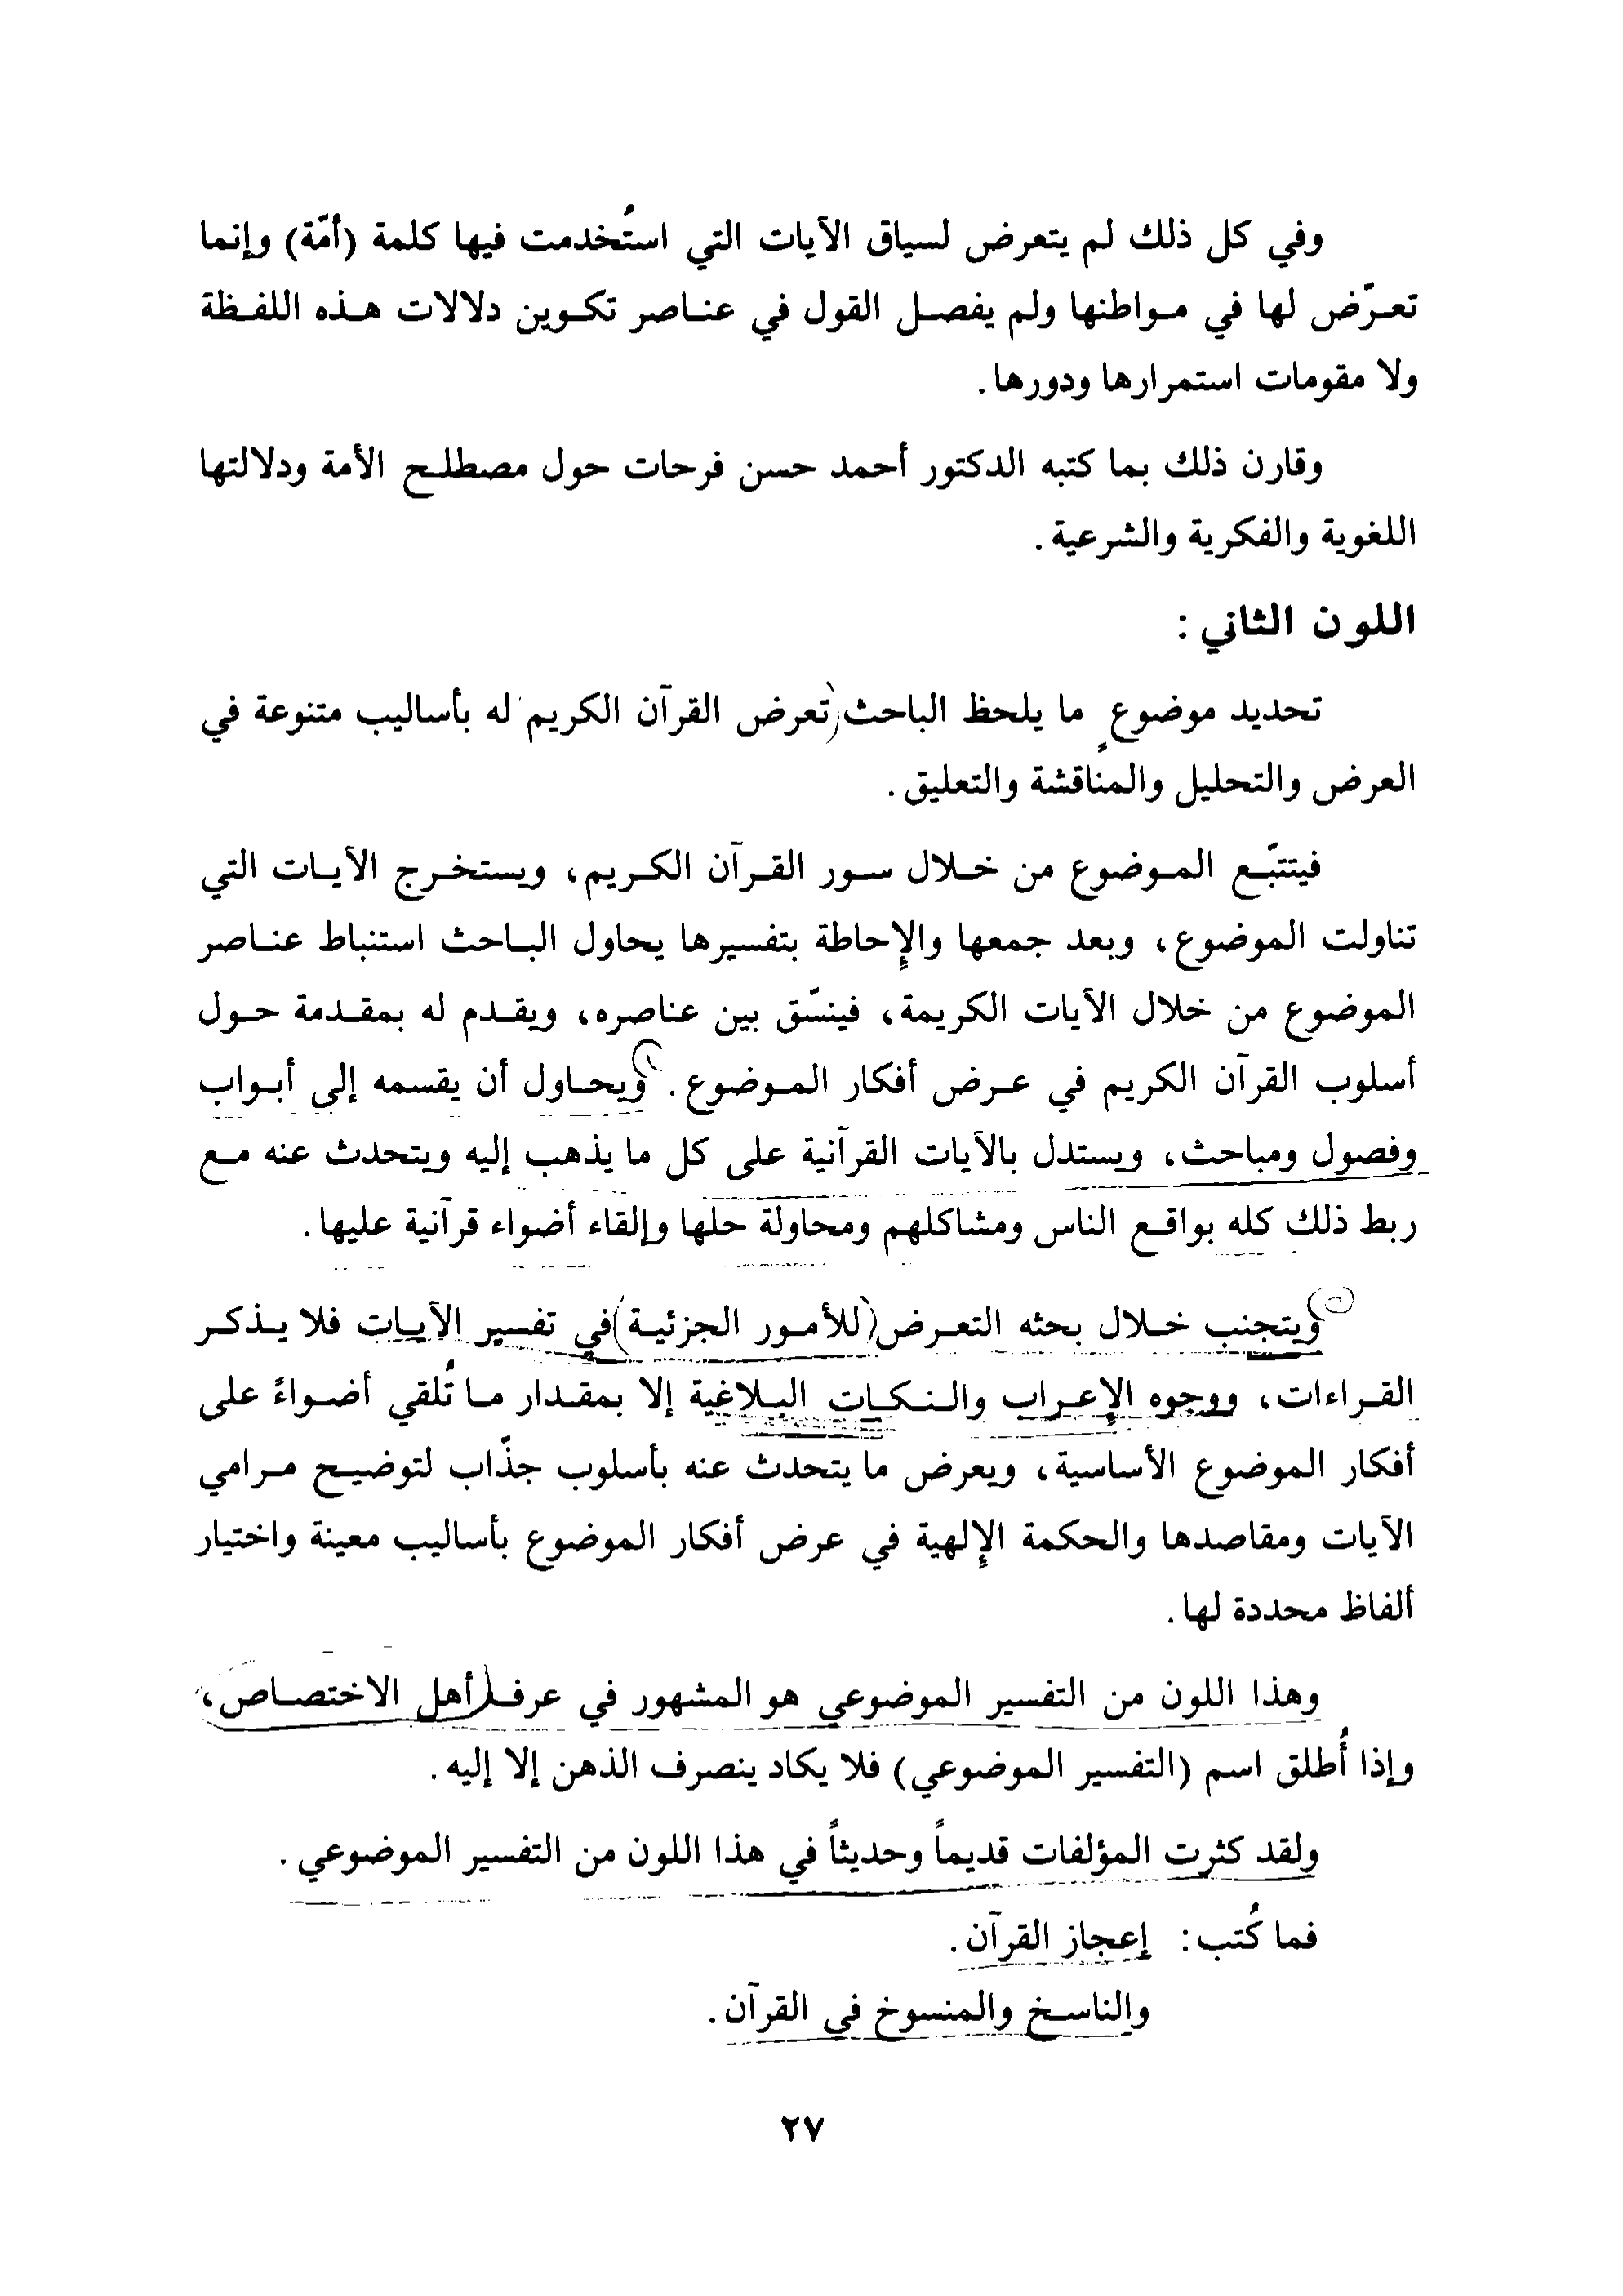 وفي كل ذلك لم يتعرض لسياق الآيات التي استُخدمت فيها كلمة (أمّة) وإنما
تعرّض لها في مواطنها ولم يفصل القول في عناصر تكوين دلالات هذه اللفظة
ولا مقومات استمرارها ودورها.
وقارن ذلك بما كتبه الدكتور أحمد حسن فرحات حول مصطلح الأمة ودلالتها
اللغوية والفكرية والشرعية.
اللون الثاني:
تحديد موضوعٍ ما يلحظ الباحث (تعرض القرآن الكريم له بأساليب متنوعة في
العرض والتحليل والمناقشة والتعليق.
فيتتبّع الموضوع من خلال سور القرآن الكريم، ويستخرج الآيات التي
تناولت الموضوع، وبعد جمعها والإحاطة بتفسيرها يحاول الباحث استنباط عناصر
الموضوع من خلال الآيات الكريمة، فينسّق بين عناصره، ويقدم له بمقدمة حول
أسلوب القرآن الكريم في عرض أفكار الموضوع. ويحاول أن يقسمه إلى أبواب
وفصول ومباحث، ويستدل بالآيات القرآنية على كل ما يذهب إليه ويتحدث عنه مع
ربط ذلك كله بواقع الناس ومشاكلهم ومحاولة حلها وإلقاء أضواء قرآنية عليها.
ويتجنب خلال بحثه التعرض (للأمور الجزئية) في تفسير الآيات فلا يذكر
القراءات، ووجوه الإعراب والنكات البلاغية إلا بمقدار ما تُلقي أضواءً على
أفكار الموضوع الأساسية، ويعرض ما يتحدث عنه بأسلوب جذّاب لتوضيح مرامي
الآيات ومقاصدها والحكمة الإلهية في عرض أفكار الموضوع بأساليب معينة واختيار
ألفاظ محددة لها.
وهذا اللون من التفسير الموضوعي هو المشهور في عرف (أهل الاختصاص،
وإذا أُطلق اسم (التفسير الموضوعي) فلا يكاد ينصرف الذهن إلا إليه.
ولقد كثرت المؤلفات قديماً وحديثاً في هذا اللون من التفسير الموضوعي.
فما كُتب: إعجاز القرآن.
والناسخ والمنسوخ في القرآن.
٢٧